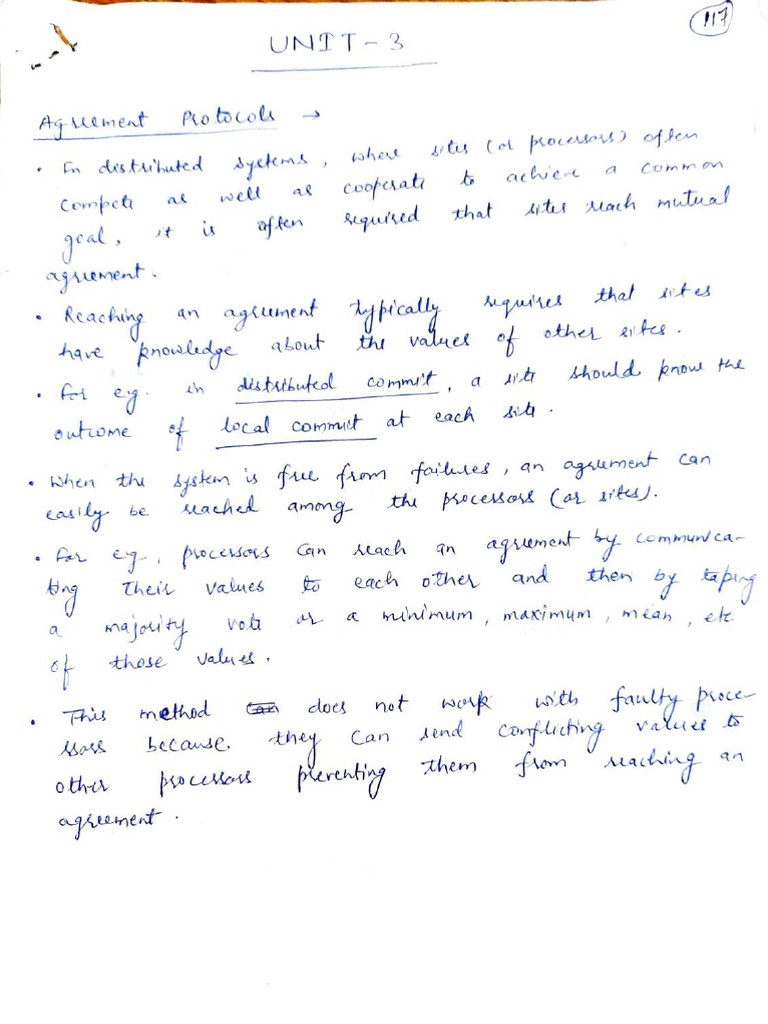 117
UNIT - 3
Agreement Protocols →
• In distributed systems, where sites (or processors) often
compete as well as cooperate to achieve a common
goal, it is often required that sites reach mutual
agreement.
• Reaching an agreement typically requires that sites
have knowledge about the values of other sites.
• For eg. in distributed commit, a site should know the
outcome of local commit at each site.
• When the system is free from failures, an agreement can
easily be reached among the processors (or sites).
• For eg, processors can reach an agreement by communica-
ting their values to each other and then by taping
a majority vote or a minimum, maximum, mean, etc
of those values.
• This method does not work with faulty proce-
ssors because they can send conflicting values to
other processors preventing them from reaching an
agreement.